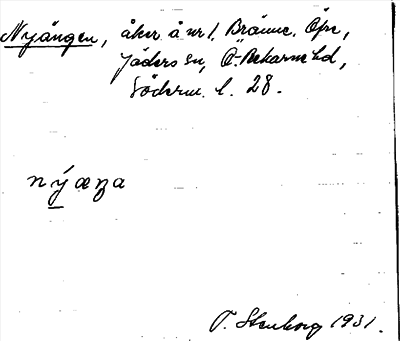 Nyängen, åker å nr 1. Bränne, Öja,
Jäders sn, Ö. Rekarne hd,
Söderm. l. 28.
nýæŋa
T. Stenborg 1931.